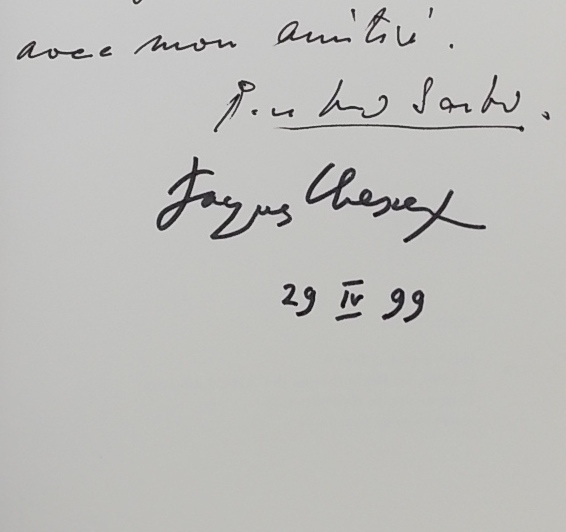 avec mon amitié.
Pietro Sarto.
Jacques Chessex
29 IV 99